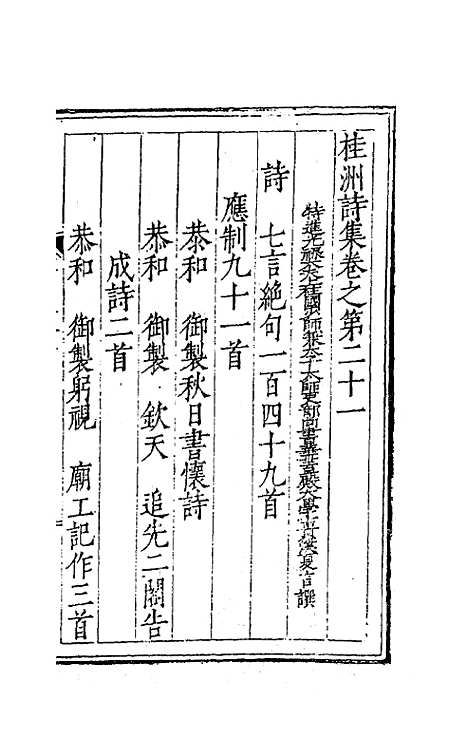 桂洲詩集卷之第二十一
特進光祿大夫上柱國少師兼太子太師吏部尚書華蓋殿大學士貴溪夏言譔
詩　七言絕句一百四十九首
應制九十一首
恭和　御製秋日書懷詩
恭和　御製　欽天　追先二閣告
成詩二首
恭和　御製躬視　廟工記作三首